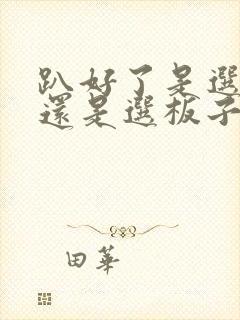 趴好了是選
還是選板子
田華